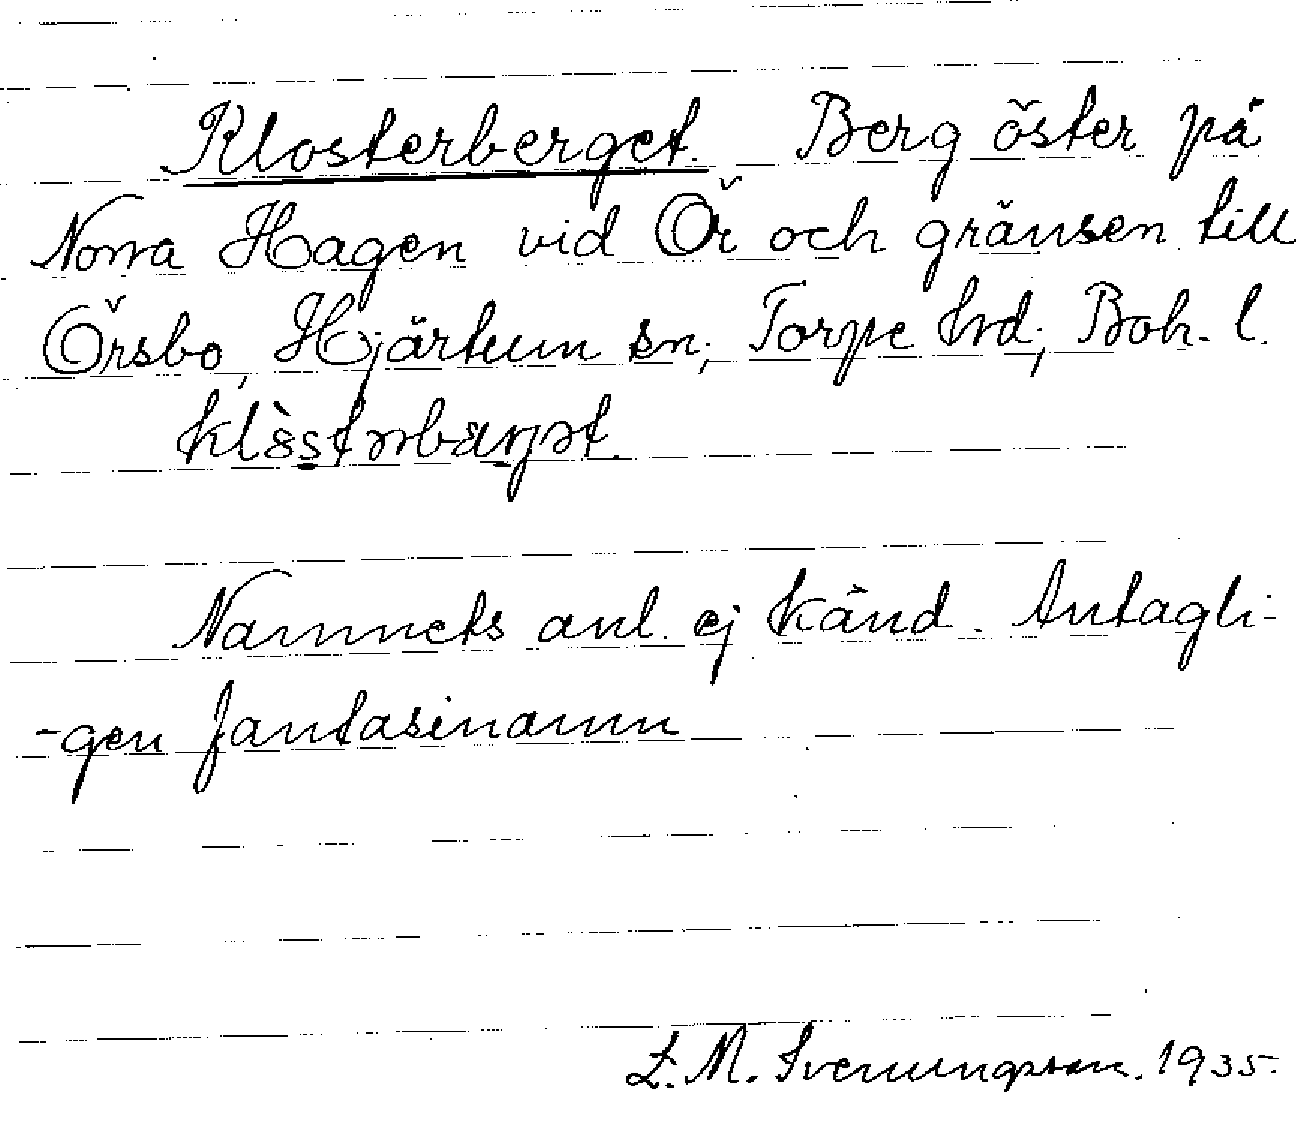 Klosterberget. Berg öster på
Norra Hagen vid Ör och gränsen till
Örsbo, Hjärtum sn; Torpe hrd; Boh. l.
Namnets anl. ej känd. Antagli-
-gen fantasinamn
M. Svenungsson. 1935.